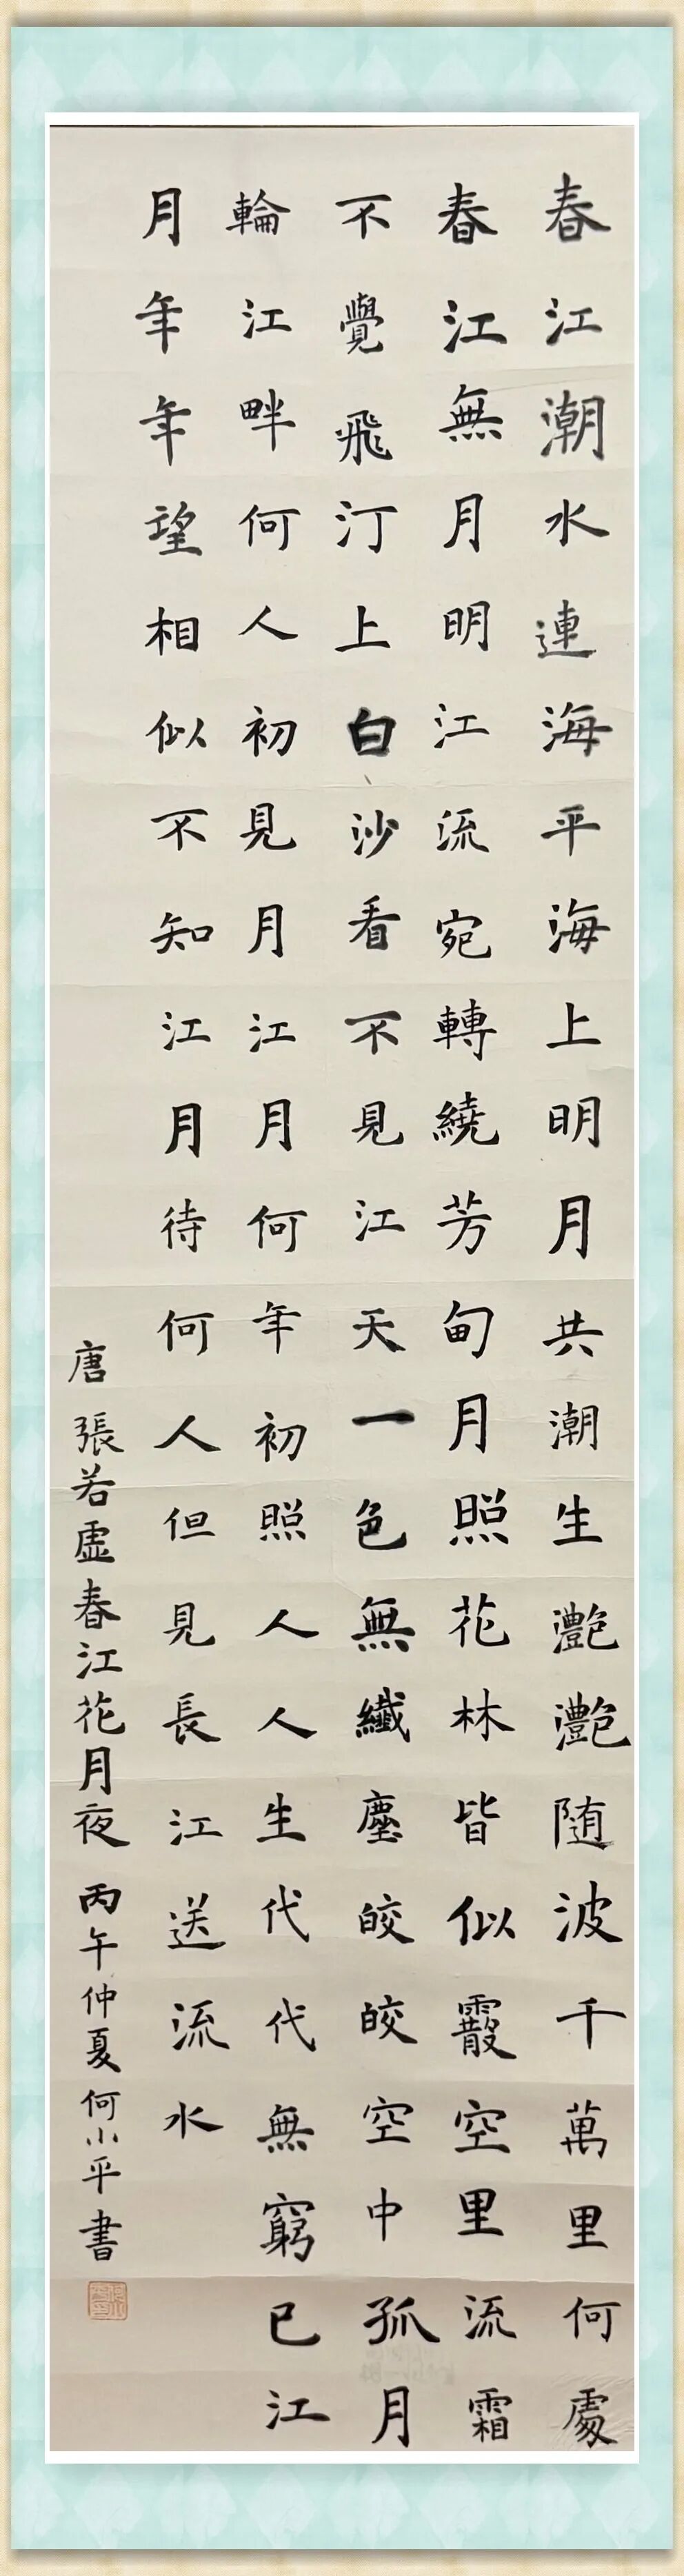 春江潮水連海平海上明月共潮生灧灧随波千萬里何處
春江無月明江流宛轉繞芳甸月照花林皆似霰空里流霜
不覺飛汀上白沙看不見江天一色無纖塵皎皎空中孤月
輪江畔何人初見月江月何年初照人人生代代無窮已江
月年年望相似不知江月待何人但見長江送流水
唐張若虛春江花月夜 丙午仲夏何小平書